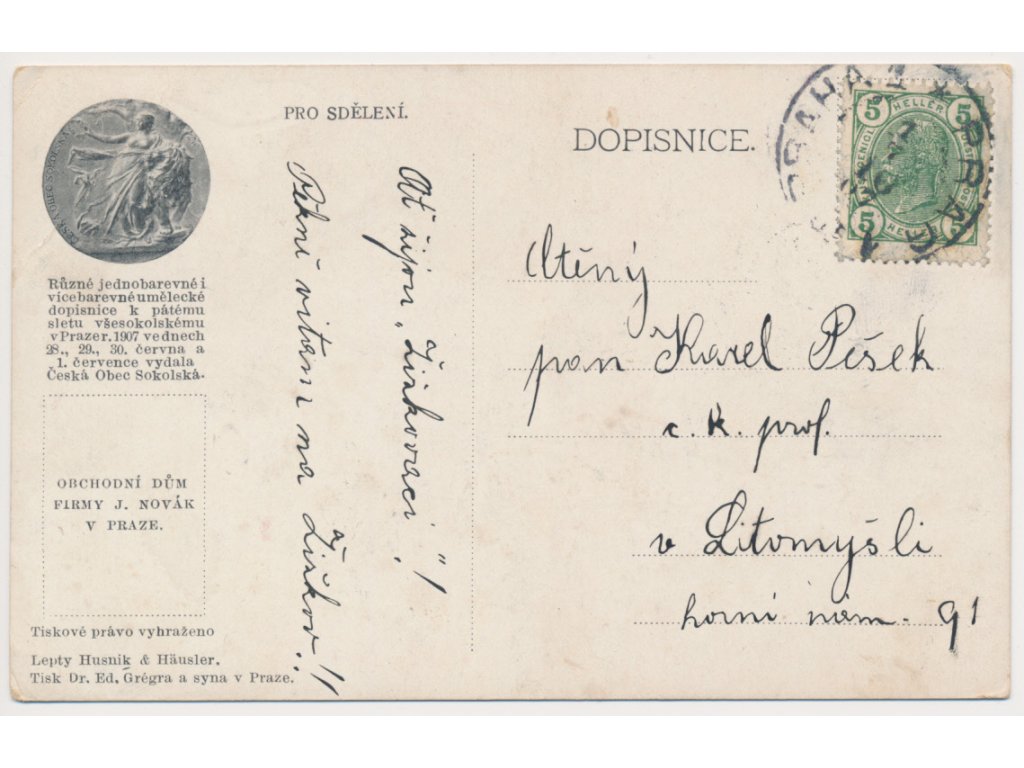 PRO SDĚLENÍ.
DOPISNICE.
5 HELLER 5
5 HELLER 5
PRAHA 1
PRAG
ČESKÁ OBEC SOKOLSKÁ
Různé jednobarevné i
vícebarevné umělecké
dopisnice k pátému
sletu všesokolskému
v Praze r. 1907 ve dnech
28., 29., 30. června a
1. července vydala
Česká Obec Sokolská.
OBCHODNÍ DŮM
FIRMY J. NOVÁK
V PRAZE.
Tiskové právo vyhraženo
Lepty Husnik & Häusler.
Tisk Dr. Ed. Grégra a syna v Praze.
Ať žijou „Žižkováci"!
Pěkně vítám na Žižkov!!
Ctěný
pan Karel Pešek
c. k. prof.
v Litomyšli
horní nám. 91